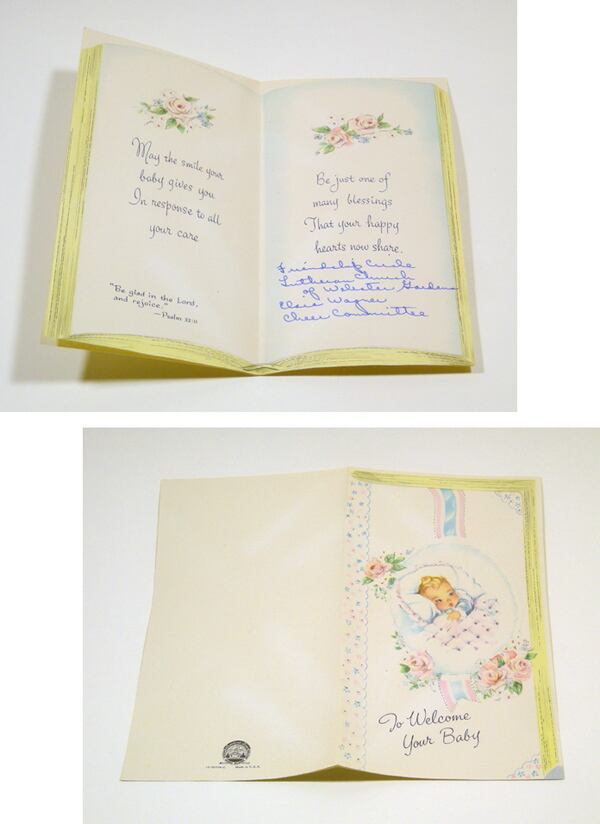 May the smile your
baby gives you
In response to all
your care
"Be glad in the Lord,
and rejoice."
—Psalm 32:11
Be just one of
many blessings
That your happy
hearts now share.
Friendship Circle
Lutheran Church
of Webster Gardens
Elsie Wagner
Cheer Committee
To Welcome
Your Baby
Made in U.S.A.